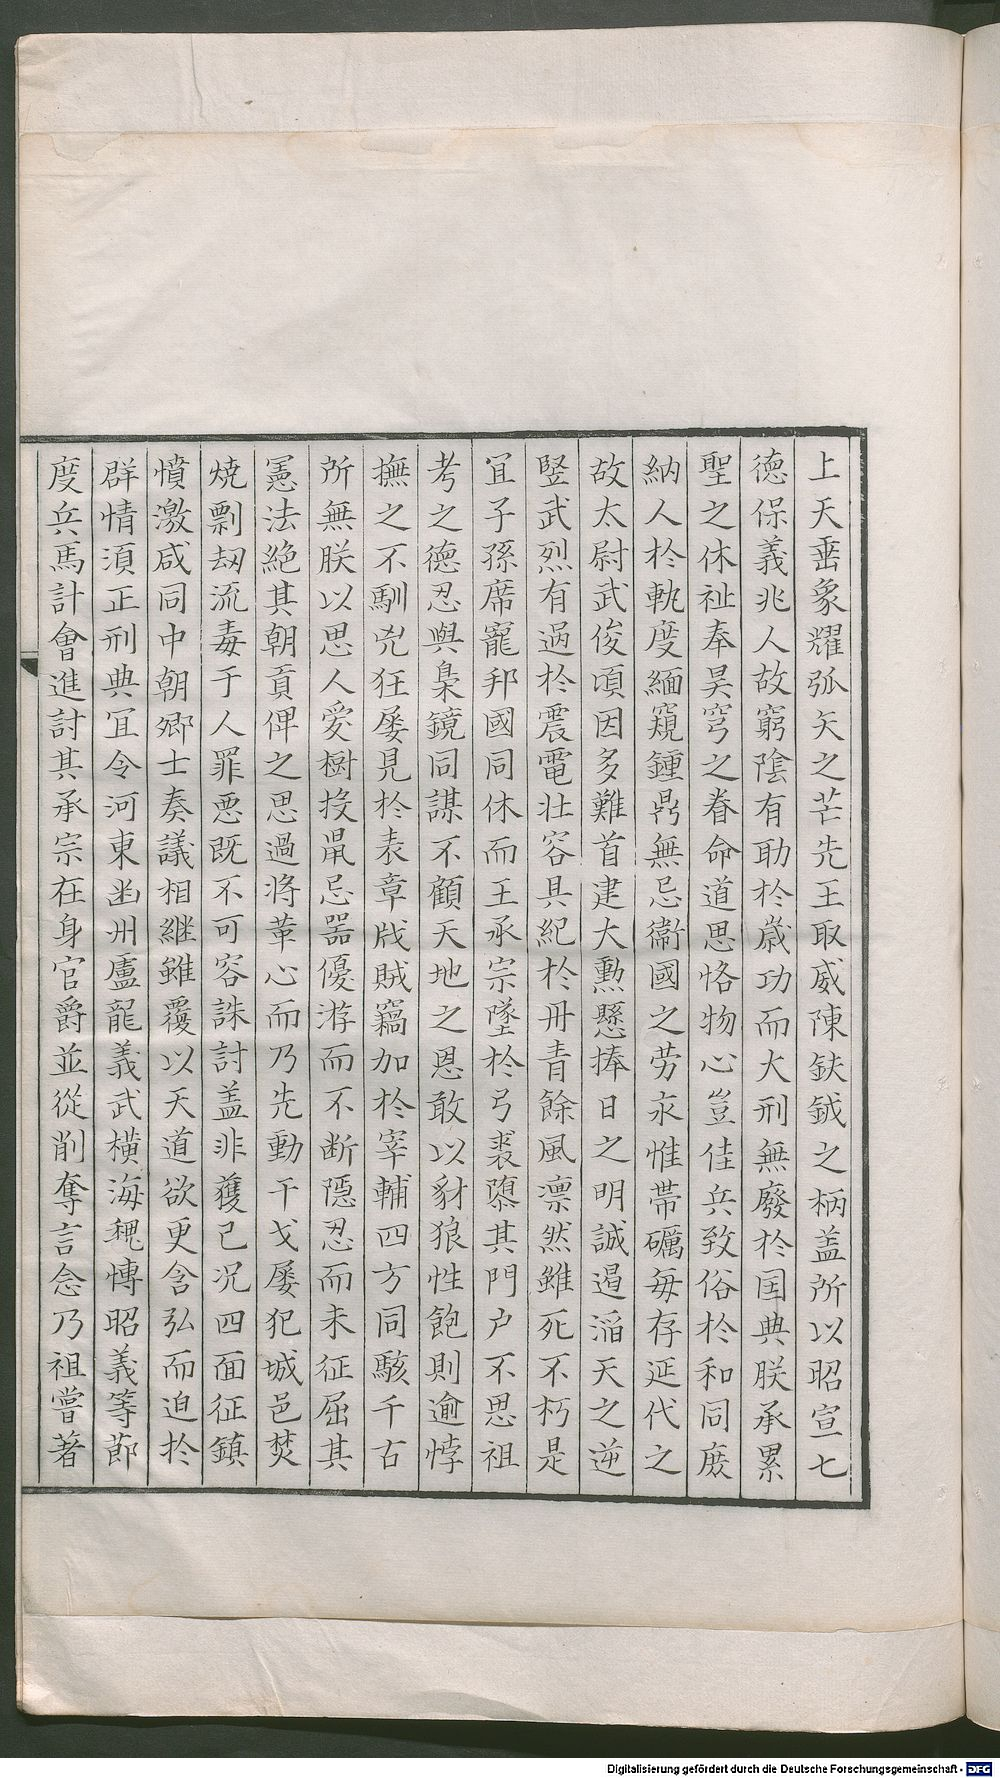 上天垂象耀弧矢之芒先王取威陳鈇鉞之柄盖所以昭宣七
德保義兆人故窮陰有助於歲功而大刑無廢於囯典朕承累
聖之休祉奉昊穹之眷命道思恪物心豈佳兵致俗於和同庻
納人於軌度緬窺鍾鼎無忌衞國之劳永惟帶礪每存延代之
故太尉武俊頃因多難首建大勲懸捧日之明誠遏滔天之逆
竪武烈有過於震電壮容具紀於丹青餘風凛然雖死不朽是
冝子孫席寵邦國同休而王承宗墜於弓裘隳其門户不思祖
考之德忍與梟鏡同謀不顧天地之恩敢以豺狼性飽則逾悖
撫之不馴兇狂屡見於表章戕賊竊加於宰輔四方同駭千古
所無朕以思人愛樹投鼠忌器優游而不断隱忍而未征屈其
憲法絶其朝貢俾之思過將革心而乃先動干戈屡犯城邑焚
燒剽刼流毒于人罪悪既不可容誅討盖非獲已况四面征鎮
憤激咸同中朝卿士奏議相継雖覆以天道欲更含弘而迫扵
群情湏正刑典冝令河東幽州盧龍義武橫海魏愽昭義等莭
度兵馬計會進討其承宗在身官爵並從削奪言念乃祖嘗著
Digitalisierung gefördert durch die Deutsche Forschungsgemeinschaft - DFG